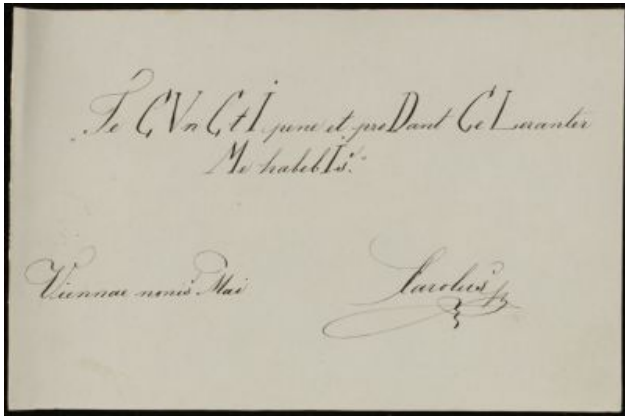 „Te CVnCtI et proDant CeLeranter
Me habebIs.“
Viennae nonis Mai
Carolus